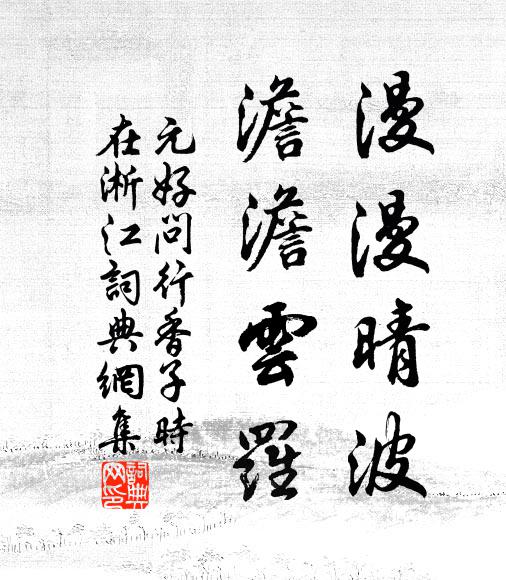 漫漫晴波
澹澹雲羅
元好問行香子時
在淅江詞典網集